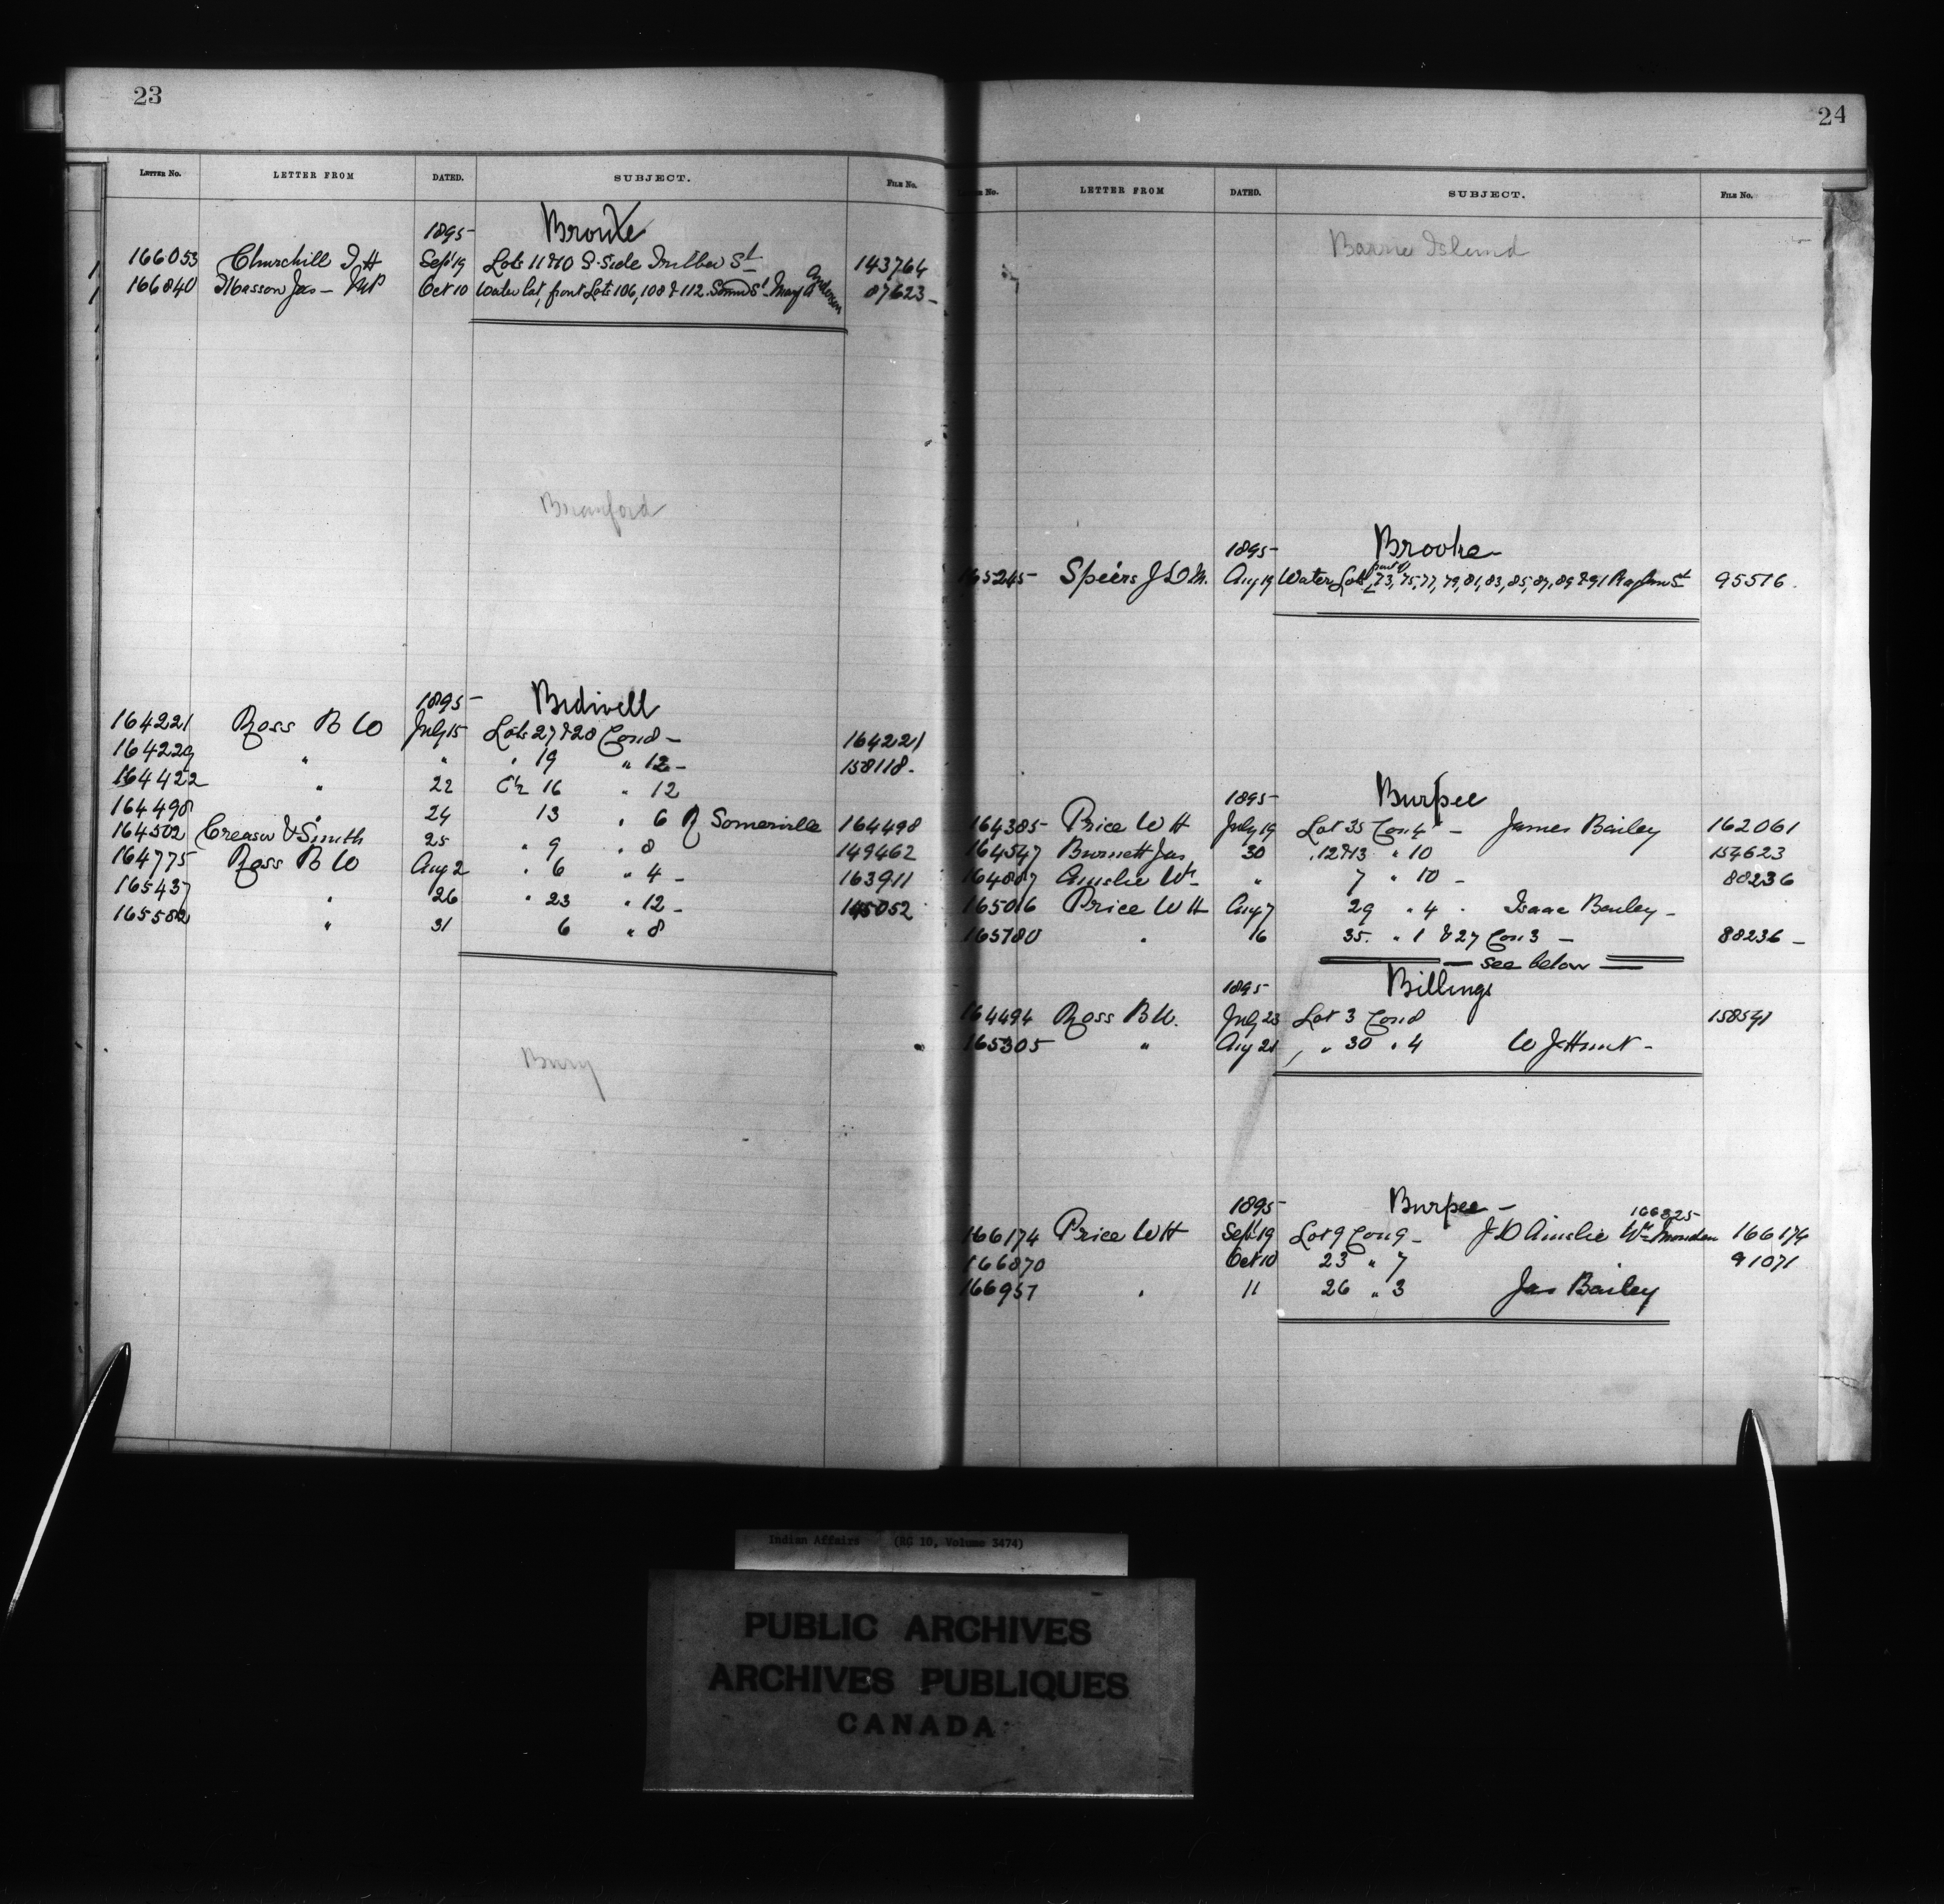 23
LETTER NO. LETTER FROM DATED. SUBJECT. FILE No.
1895 Brooke
166053 Churchill J H Sept 19 Lots 11 & 10 S. Side St 143764
166840 Masson Jas - MP Oct 10 Water Lot, front Lots 106, 108 & 112 Sound St Mary Anderson 87623
Branford
1895 Bidwell
164221 Ross B W July 15 Lots 27 & 28 Con 8 - 164221
164229 " " " 19 " 12 - 158118
164422 " 22 16 " 12
164498 " 24 13 " 6 Somerville 164498
164502 Creasor & Smith 25 " 9 " 8 149462
164775 Ross B W Aug 2 " 6 " 4 - 163911
165437 " 26 " 23 " 12 - 145052
165582 " 31 6 " 8
Bury
24
No. LETTER FROM DATED. SUBJECT. FILE No.
Barrie Island
1895 Brooke
165245 Speers J D M. Aug 19 Water Lots part of 73, 75, 77, 79, 81, 83, 85, 87, 89 & 91 St 95516
1895 Burpee
164385 Price W H July 19 Lot 35 Con 4 - James Bailey 162061
164547 Burnett Jas 30 " 12 & 13 " 10 157623
164807 Ainslie Wm " 7 " 10 - 88236
165016 Price W H Aug 7 29 " 4 . Isaac Bailey -
165180 " 16 35 " 1 & 27 Con 3 - 88236 -
see below
1895 Billings
164494 Ross B W. July 23 Lot 3 Con 8 158591
165305 " Aug 21 " 30 " 4 W J Hunt -
1895 Burpee -
166825
166174 Price W H Sept 19 Lot 9 Con 9 - J D Ainslie Wm 166174
166870 Oct 10 23 " 7 91071
166957 " 11 26 " 3 Jas Bailey
Indian Affairs (RG 10, Volume 3474)
PUBLIC ARCHIVES
ARCHIVES PUBLIQUES
CANADA